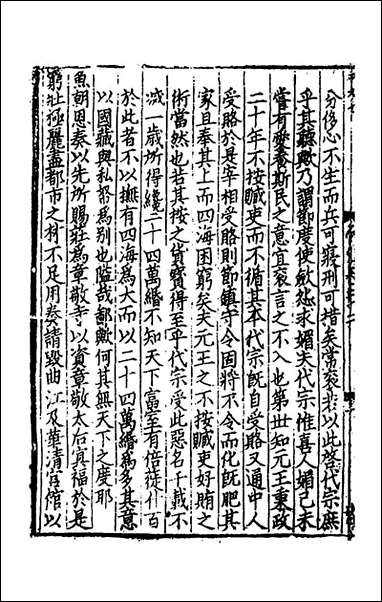 分侈心不生而兵可寢刑可措矣常袞非以此啓代宗庶
乎其聽歟乃謂節度使斂怨求媚夫代宗惟喜人媚己未
嘗有愛養斯民之意宜袞言之不入也第丗知元王秉政
二十年不按贓吏而不循其本代宗旣自受賂又通中人
受賂於是宰相受賂則節鎮守令固將不令而化旣肥其
家且奉其上而四海困窮矣夫元王之不按贓吏好賄之
術當然也若其按之貨寶得至乎代宗受此惡名千載不
滅一歲所得纔二十四萬緡不知天下富至有倍徙什百
於此者不以撫有四海爲大而以二十四萬緡爲多其意
以國藏與私帑爲別也隘哉鄙歟何其無天下之度耶
魚朝恩奏以先所賜莊爲章敬寺以資章敬太后㝠福於是
窮壯極麗盡都市之材不足用奏請毀曲江及華清宮館以